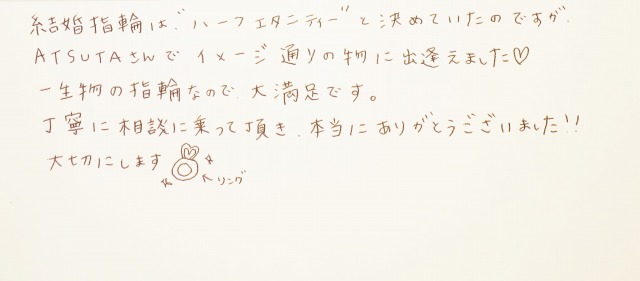 結婚指輪は、"ハーフエタニティー"と決めていたのですが、
ATSUTAさんでイメージ通りの物に出逢えました♡
一生物の指輪なので、大満足です。
丁寧に相談に乗って頂き、本当にありがとうございました!!
大切にします
リング